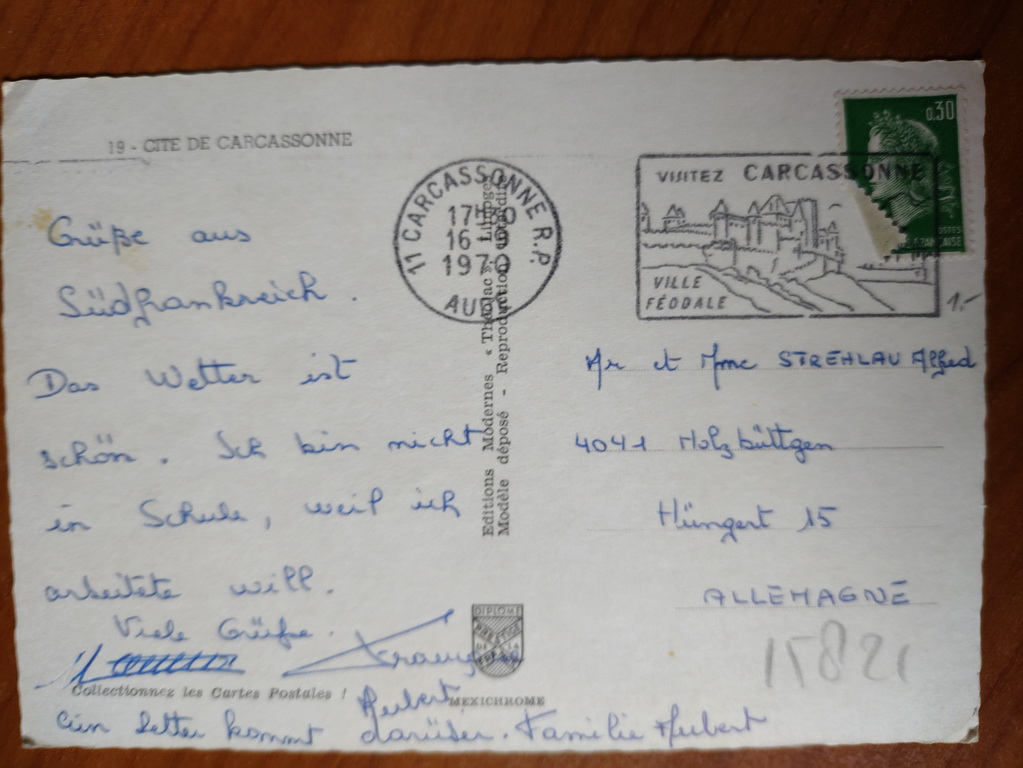 19 - CITE DE CARCASSONNE
11 CARCASSONNE R.P.
17H30
16 - 9
1970
AUDE
VISITEZ CARCASSONNE
VILLE
FÉODALE
0.30
POSTES
FRANÇAISE
1.-
Grüße aus
Südfrankreich.
Das Wetter ist
schön. Ich bin nicht
in Schule, weil ich
arbeitete will.
Viele Grüße.
Hubert
Ein Letter kommt darüber. Familie Hubert
Editions Modernes « Théojac », Limoges
Modèle déposé - Reproduction interdite
Mr et Mme STREHLAU Alfred
4041 Holzbüttgen
Hüngert 15
ALLEMAGNE
15821
DIPLOME
PRESTIGE
DE LA
Collectionnez les Cartes Postales !
MEXICHROME